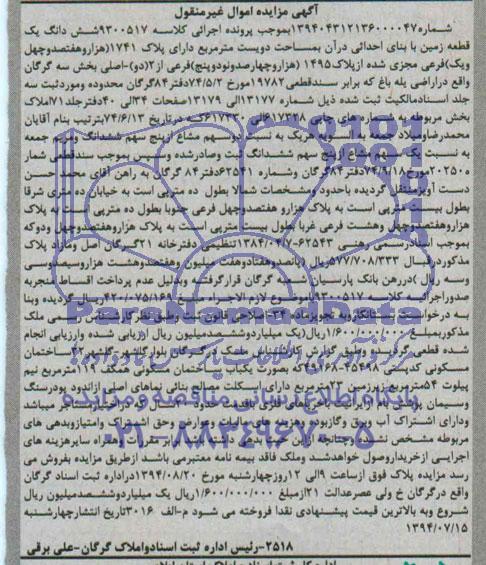 آگهی مزایده اموال غیرمنقول
شماره۱۳۹۴۰۴۳۱۲۱۳۶۰۰۰۰۴۷بموجب پرونده اجرائی کلاسه ۹۳۰۰۵۱۷شش دانگ یک
قطعه زمین با بنای احداثی درآن بمساحت دویست مترمربع دارای پلاک ۱۷۴۱(هزاروهفتصدوچهل
ویک)فرعی مجزی شده ازپلاک۱۴۹۵ (هزاروچهارصدونودوپنج)فرعی از۲(دو)-اصلی بخش سه گرگان
واقع دراراضی پله باغ که برابر سندقطعی۱۹۷۸۲مورخ ۷۴/۵/۲دفتر۸۴گرگان محدوده وموردثبت سه
جلد اسنادمالکیت ثبت شده ذیل شماره ۱۳۱۷۷الی ۱۳۱۷۹صفحات ۳۴الی ۴۰دفترجلد۷۱املاک
بخش مربوطه به شماره های چاپی ۶۱۷۳۲۸الی ۶۱۷۳۳۰که درتاریخ ۷۴/۶/۱۳بترتیب بنام آقایان
محمدرضاومیلاد جمعه یا آنسویه هریک به نسبت دوسهم مشاع ازپنج سهم ششدانگ ومریم جمعه
به نسبت یک سهم مشاع ازپنج سهم ششدانگ ثبت وصادرشده وسپس بموجب سندقطعی شمار
ه۲۰۲۵۰مورخ۷۴/۹/۱۸دفتر۸۴گرگان وشماره ۶۲۵۴۱دفتر۸۴ گرگان به راهن آقای محمد حسن
دست آویزمنتقل گردیده باحدود ومشخصات شمالا بطول ده مترپی است به خیابان ده متری شرقا
بطول بیست مترپی است به پلاک هزارو هفتصدوچهل فرعی جنوبا بطول ده مترپی است به پلاک
هزاروهفتصدوچهل وهشت فرعی غربا بطول بیست مترپی است به پلاک هزاروهفتصدوچهل ودوکه
بموجب اسنادرسمی رهنی ۶۲۵۴۳-۱۳۸۴/۰۴/۷تنظیمی دفترخانه ۲۱گرگان اصل ومازاد پلاک
مذکوردرقبال ۵۷۷/۷۰۸/۳۳۳ریال (پانصدوهفتادوهفت میلیون وهفتصدوهشت هزاروسیصدوسی
وسه ریال )دررهن بانک پارسیان شعبه گرگان قرارگرفته وبدلیل عدم پرداخت اقساط منجربه
صدوراجرائیه کلاسه ۹۳۰۰۵۱۷باموضوع لازم الاجراء مبلغ ۴۲۰/۰۷۵/۱۶۹ریال گردیده وبنا
به درخواست بستانکاروبه تجویزماده ۳۴-اصلاحی قانون ثبت وطبق نظرکارشناس رسمی ملک
مذکوربمبلغ ۱/۶۰۰/۰۰۰/۰۰۰ریال(یک میلیاردوششصدمیلیون ریال ارزیابی شده وارزیابی انجام
شده قطعی گردیده وطبق گزارش کارشناس ملک در گرگان بلوارگلشهر
مسکونی کدپستی که بصورت یکباب ساختمان مسکونی همکف ۱۱۹مترمربع نیم
پیلوت ۵۴مترمربع زیرزمین ۲۲مترمربع دارای اسکلت مصالح بنائی نماهای اصلی ازاندود پودرسنگ
وسیمان پوشش بام
ودارای اشتراک آب وبرق وگازبوده وهزینه های مالیات وعوارض وحق اشتراک وامتیازوبدهی های
مربوطه مشخص نشده
اجرایی ازخریداروصول خواهدشد وملک فاقد بیمه نامه معتبرمی باشد ازطریق مزایده بفروش می
رسد مزایده پلاک فوق ازساعت ۹الی ۱۲روزچهارشنبه مورخ ۱۳۹۴/۰۸/۲۰دراداره ثبت اسناد گرگان
واقع درگرگان خ ولی عصرعدالت ۲۱ازمبلغ ۱/۶۰۰/۰۰۰/۰۰۰ریال یک میلیاردوششصدمیلیون ریال
شروع وبه بالاترین قیمت پیشنهادی نقدا فروخته می شود م-الف ۳۰۱۶تاریخ انتشارچهارشنبه
۱۳۹۴/۰۷/۱۵
۲۵۱۸-رئیس اداره ثبت اسنادواملاک گرگان-علی برقی
ParsNamadData
پایگاه اطلاع رسانی مناقصه و مزایده
۰۲۱-۸۸۳۴۹۶۷۰-۵